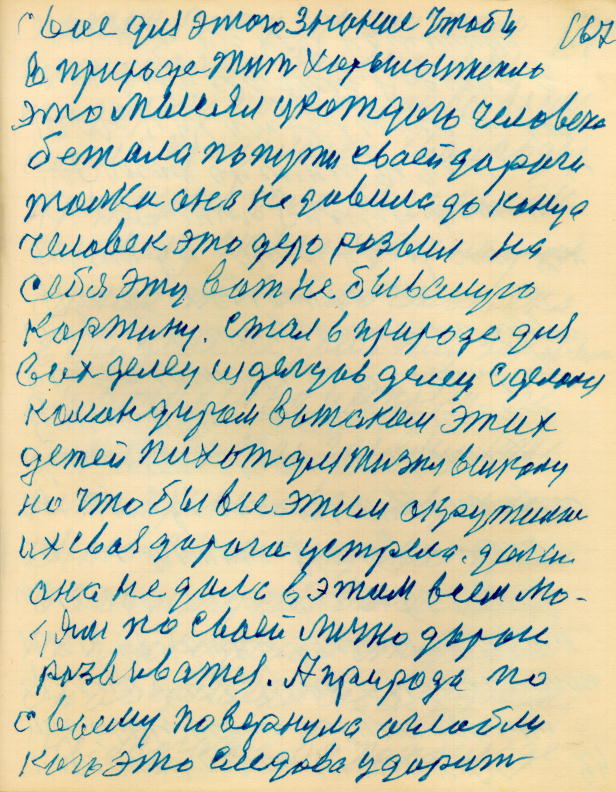 свае для этого знание чтобы 167
в природе жит харышо и тепло
это мысля у каждого человека
бежала по пути своей дароги
толка она не давила до конца
человек это дело розвил на
себя эту вот не бывшую
картину. стал в природе для
всех делец и делцов делец сделони
командиром вотаком этих
детей пихот для жизни
но чтобы все этим окружил
их своя дарога устрела.
она не дала в этим всем мо-
тям по своей лично дароги
розвиватся. А природа по
своему повернула аглобли
кого это следова ударит